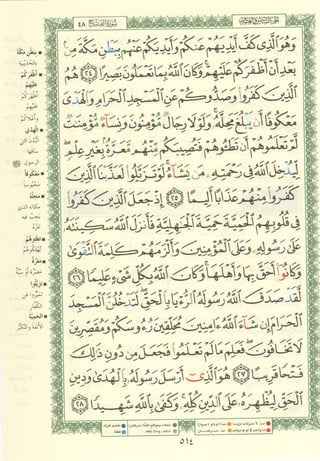 سُورَةُ الفَتْحِ ٤٨
وَهُوَ الَّذِي كَفَّ أَيْدِيَهُمْ عَنكُمْ وَأَيْدِيَكُمْ عَنْهُم بِبَطْنِ مَكَّةَ مِنۢ
بَعْدِ أَنْ أَظْفَرَكُمْ عَلَيْهِمْ وَكَانَ اللَّهُ بِمَا تَعْمَلُونَ بَصِيرًا ٢٤ هُمُ
الَّذِينَ كَفَرُوا وَصَدُّوكُمْ عَنِ الْمَسْجِدِ الْحَرَامِ وَالْهَدْيَ
مَعْكُوفًا أَن يَبْلُغَ مَحِلَّهُ وَلَوْلَا رِجَالٌ مُّؤْمِنُونَ وَنِسَاءٌ مُّؤْمِنَاتٌ
لَّمْ تَعْلَمُوهُمْ أَن تَطَئُوهُمْ فَتُصِيبَكُم مِّنْهُم مَّعَرَّةٌ بِغَيْرِ عِلْمٍ
لِّيُدْخِلَ اللَّهُ فِي رَحْمَتِهِ مَن يَشَاءُ لَوْ تَزَيَّلُوا لَعَذَّبْنَا الَّذِينَ
كَفَرُوا مِنْهُمْ عَذَابًا أَلِيمًا ٢٥ إِذْ جَعَلَ الَّذِينَ كَفَرُوا
فِي قُلُوبِهِمُ الْحَمِيَّةَ حَمِيَّةَ الْجَاهِلِيَّةِ فَأَنزَلَ اللَّهُ سَكِينَتَهُ
عَلَى رَسُولِهِ وَعَلَى الْمُؤْمِنِينَ وَأَلْزَمَهُمْ كَلِمَةَ التَّقْوَى
وَكَانُوا أَحَقَّ بِهَا وَأَهْلَهَا وَكَانَ اللَّهُ بِكُلِّ شَيْءٍ عَلِيمًا ٢٦
لَّقَدْ صَدَقَ اللَّهُ رَسُولَهُ الرُّؤْيَا بِالْحَقِّ لَتَدْخُلُنَّ الْمَسْجِدَ
الْحَرَامَ إِن شَاءَ اللَّهُ ءَامِنِينَ مُحَلِّقِينَ رُءُوسَكُمْ وَمُقَصِّرِينَ
لَا تَخَافُونَ فَعَلِمَ مَا لَمْ تَعْلَمُوا فَجَعَلَ مِن دُونِ ذَلِكَ
فَتْحًا قَرِيبًا ٢٧ هُوَ الَّذِي أَرْسَلَ رَسُولَهُ بِالْهُدَى وَدِينِ
الْحَقِّ لِيُظْهِرَهُ عَلَى الدِّينِ كُلِّهِ وَكَفَى بِاللَّهِ شَهِيدًا ٢٨
بِبَطْنِ مَكَّةَ
بالحديبية
أَظْفَرَكُمْ
عَلَيْهِمْ
الهَدْيَ
مَعْكُوفًا
محبوسا
مَحِلَّهُ
تَطَئُوهُمْ
مَعَرَّةٌ
تَزَيَّلُوا
الحَمِيَّةَ
٥١٤